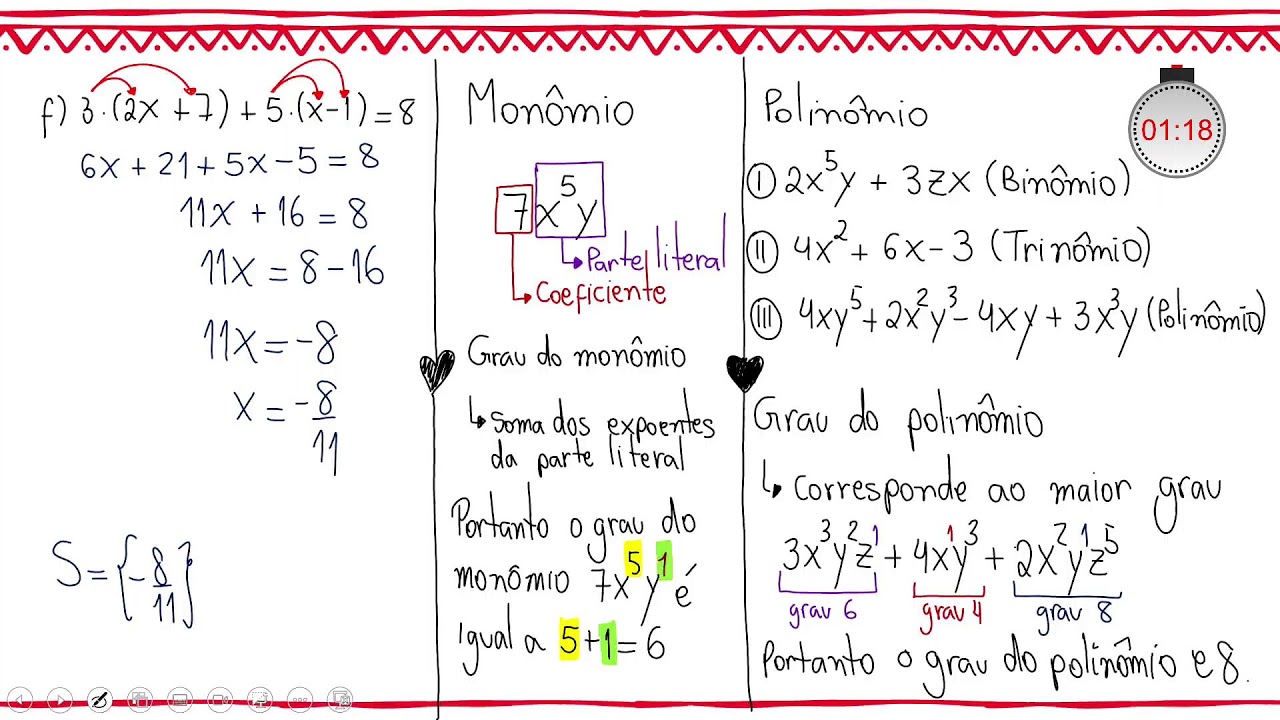 f) 3·(2x + 7) + 5·(x-1) = 8
6x + 21 + 5x - 5 = 8
11x + 16 = 8
11x = 8 - 16
11x = -8
x = -8/11
S = {-8/11}
Monômio
7x⁵y
Parte literal
Coeficiente
Grau do monômio
↳ Soma dos expoentes
da parte literal
Portanto o grau do
monômio 7x⁵y¹ é
igual a 5+1=6
Polinômio
I 2x⁵y + 3zx (Binômio)
II 4x² + 6x - 3 (Trinômio)
III 4xy⁵ + 2x²y³ - 4xy + 3x³y (Polinômio)
Grau do polinômio
↳ Corresponde ao maior grau
3x³y²z¹ + 4x¹y³ + 2x²y¹z⁵
grau 6 grau 4 grau 8
Portanto o grau do polinômio e 8.
01:18